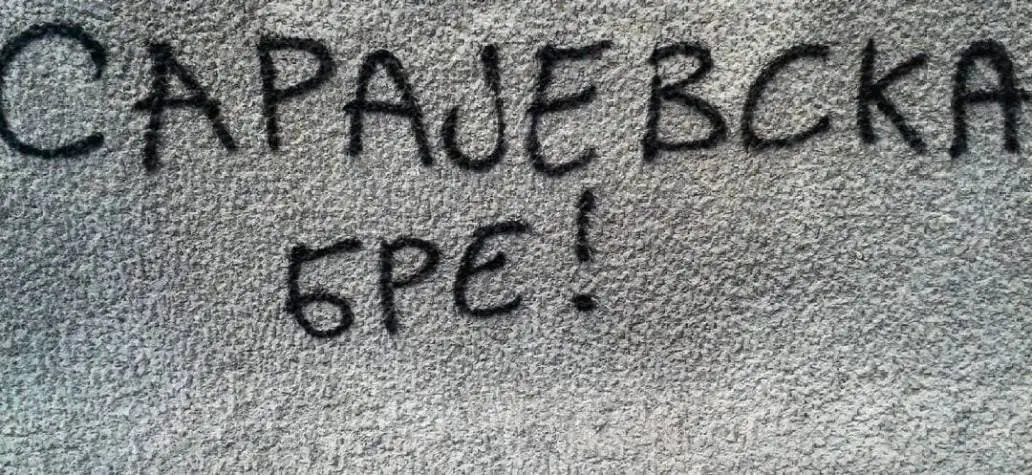 САРАЈЕВСКА
БРЕ!